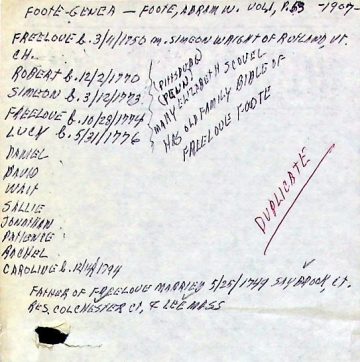 FOOTE-GENEA - FOOTE, ABRAM W. VOL 1, P. 53 -1907-
FREELOVE b. 3/4/1750 m. SIMEON WRIGHT OF RUTLAND, VT.
CH.
ROBERT b. 12/2/1770
SIMEON b. 3/12/1773
FREELOVE b. 10/28/1774
LUCY b. 5/31/1776
(PITTSBURG
(PENN)
MARY ELIZABETH SCOVEL
HAS OLD FAMILY BIBLE OF
FREELOVE FOOTE
DANIEL
DAVID
WAIT
SALLIE
JONATHAN
PATIENCE
RACHEL
CAROLINE b. 12/4/1794
DUPLICATE
FATHER OF FREELOVE MARRIED 5/25/1749 SAYBROOK, CT.
RES. COLCHESTER CT. & LEE MASS